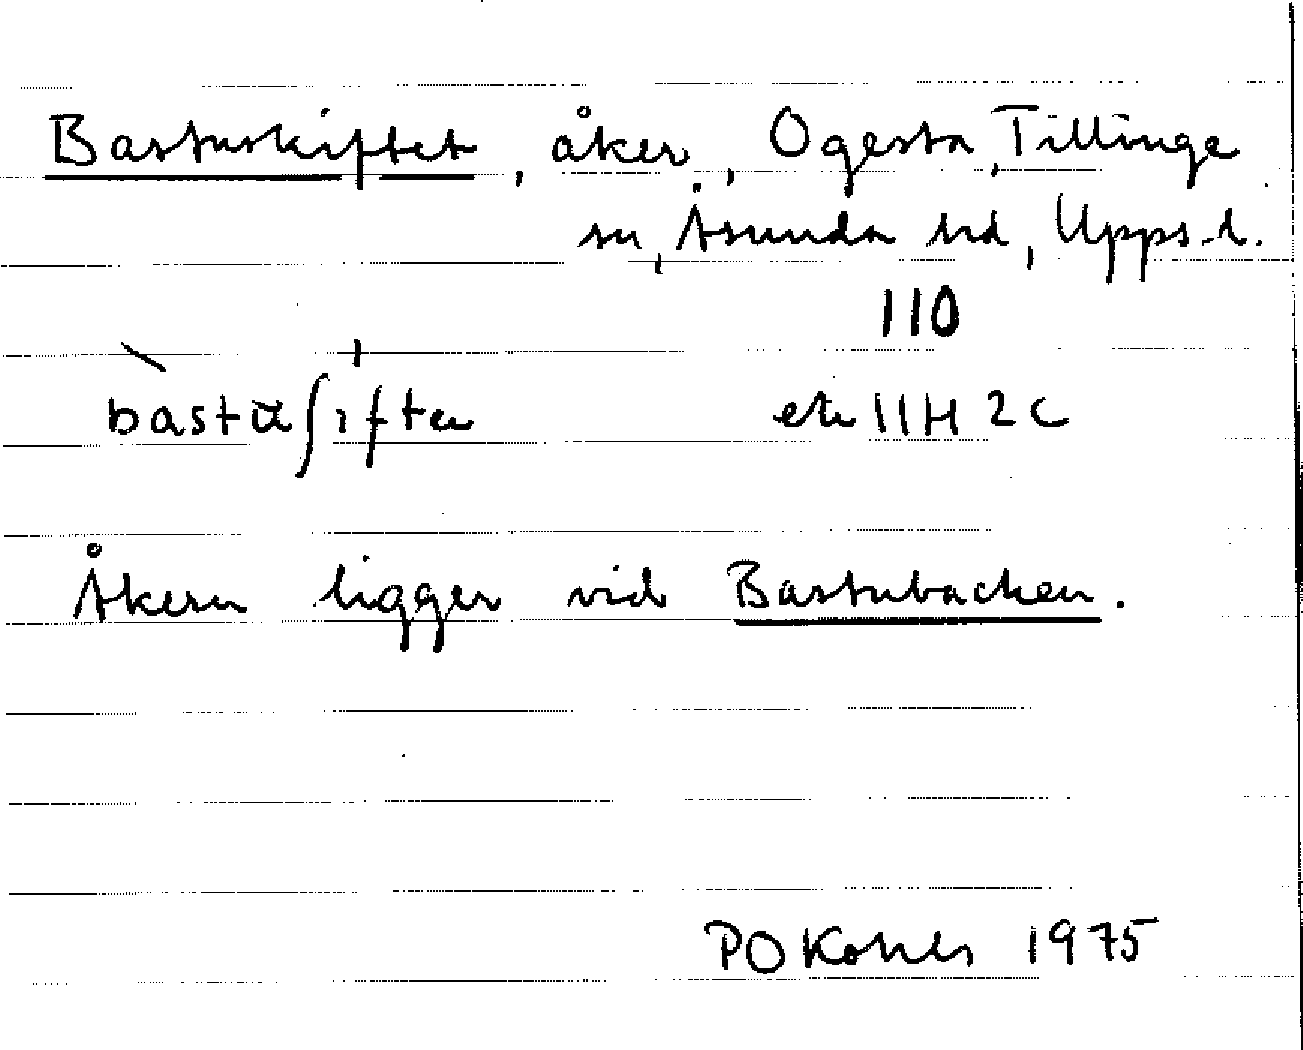 Bastuskiftet, åker, Ogesta, Tillinge
sn, Åsunda hd, Upps. l.
110
bastuʃiften ek 11H 2c
Åkern ligger vid Bastubacken.
PO 1975